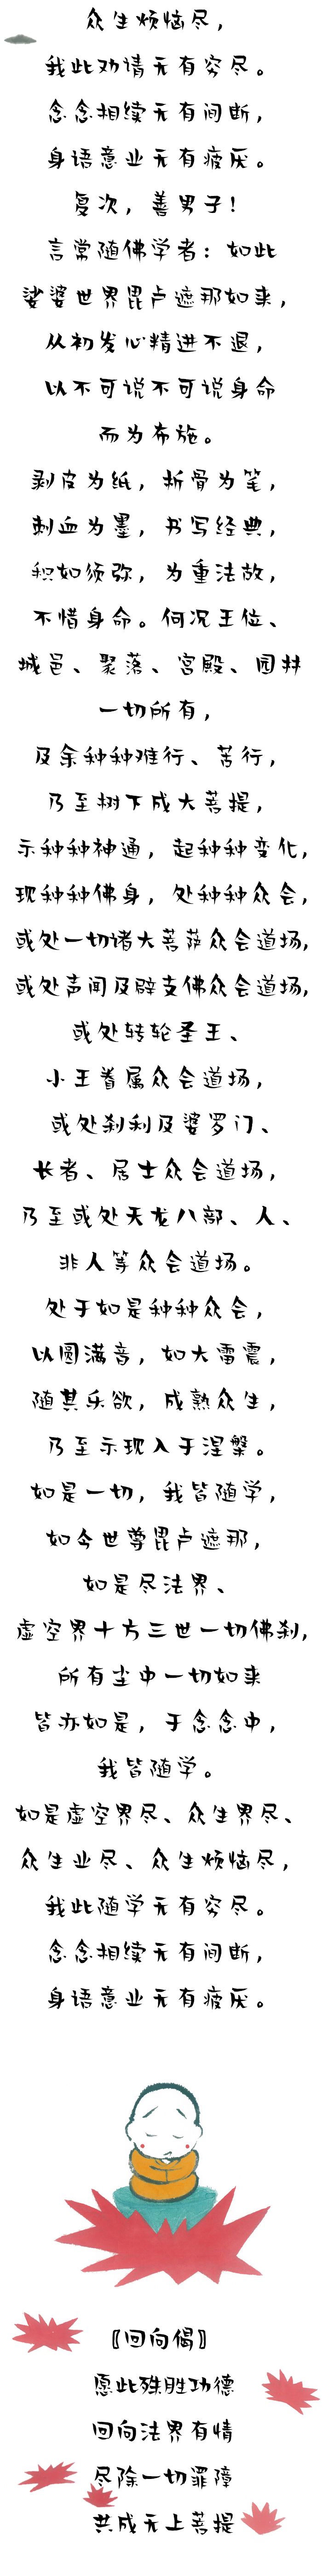 众生烦恼尽，
我此劝请无有穷尽。
念念相续无有间断，
身语意业无有疲厌。
复次，善男子！
言常随佛学者：如此
娑婆世界毘卢遮那如来，
从初发心精进不退，
以不可说不可说身命
而为布施。
剥皮为纸，折骨为笔，
刺血为墨，书写经典，
积如须弥，为重法故，
不惜身命。何况王位、
城邑、聚落、宫殿、园林
一切所有，
及余种种难行、苦行，
乃至树下成大菩提，
示种种神通，起种种变化，
现种种佛身，处种种众会，
或处一切诸大菩萨众会道场，
或处声闻及辟支佛众会道场，
或处转轮圣王、
小王眷属众会道场，
或处刹利及婆罗门、
长者、居士众会道场，
乃至或处天龙八部、人、
非人等众会道场。
处于如是种种众会，
以圆满音，如大雷震，
随其乐欲，成熟众生，
乃至示现入于涅槃。
如是一切，我皆随学，
如今世尊毘卢遮那，
如是尽法界、
虚空界十方三世一切佛刹，
所有尘中一切如来
皆亦如是，于念念中，
我皆随学。
如是虚空界尽、众生界尽、
众生业尽、众生烦恼尽，
我此随学无有穷尽。
念念相续无有间断，
身语意业无有疲厌。
〖回向偈〗
愿此殊胜功德
回向法界有情
尽除一切罪障
共成无上菩提